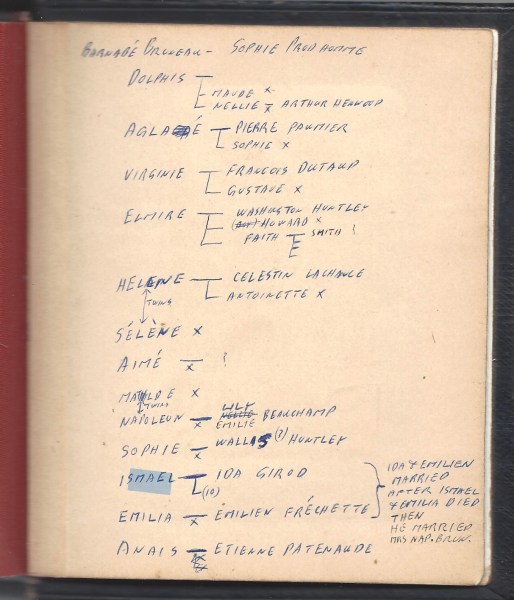 BARNABÉ BRUNEAU - SOPHIE PRUDHOMME
DOLPHIS
MAUDE X
NELLIE X ARTHUR HENWOOD
AGLAÉ PIERRE PAUMIER
SOPHIE X
VIRGINIE FRANCOIS DUTAUD
GUSTAVE X
ELMIRE WASHINGTON HUNTLEY
HOWARD X
FAITH SMITH !
HELENE CELESTIN LACHANCE
TWINS
ANTOINETTE X
SÉLÈNE X
AIMÉ X ?
X
TWINS
NAPOLEON X LILY EMILIE BEAUCHAMP
SOPHIE X WALLIS (?) HUNTLEY
ISMAEL IDA GIROD
(10)
EMILIA X EMILIEN FRÉCHETTE
ANAIS ETIENNE PATENAUDE
IDA & EMILIEN
MARRIED
AFTER ISMAEL
& EMILIA DIED
THEN
HE MARRIED
MRS NAP. BRUN.